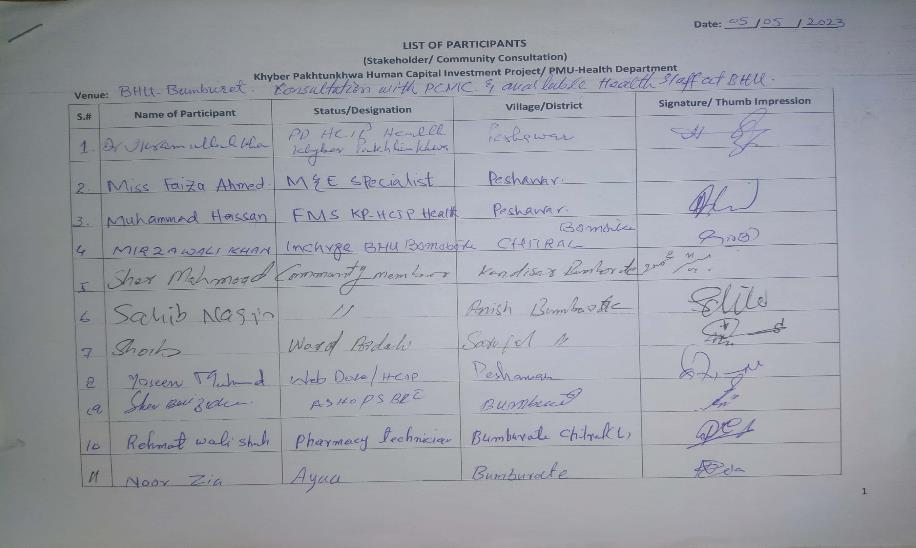 Date: 05/05/2023
LIST OF PARTICIPANTS
(Stakeholder/ Community Consultation)
Khyber Pakhtunkhwa Human Capital Investment Project/ PMU-Health Department
Venue: BHU-Bumburet. Consultation with PCMC & available Health Staff at BHU.
S.# Name of Participant Status/Designation Village/District Signature/ Thumb Impression
1. Dr Ikramullah Khan PD HCIP Health Khyber Pakhtunkhwa Peshawar
2. Miss Faiza Ahmed. M&E Specialist Peshawar.
3. Muhammad Hassan FMS KP-HCIP Health Peshawar.
4 MIRZA WALI KHAN Incharge BHU CHITRAL
5 Sher Mahmood Community member
6 Sahib Nasir " Anish
7 Shoib Ward
8 Yaseen HCIP Peshawar
9 Sher
10 Rehmat wali shah Pharmacy technician Bumburate
11 Noor Zia Ayaa Bumburate
1